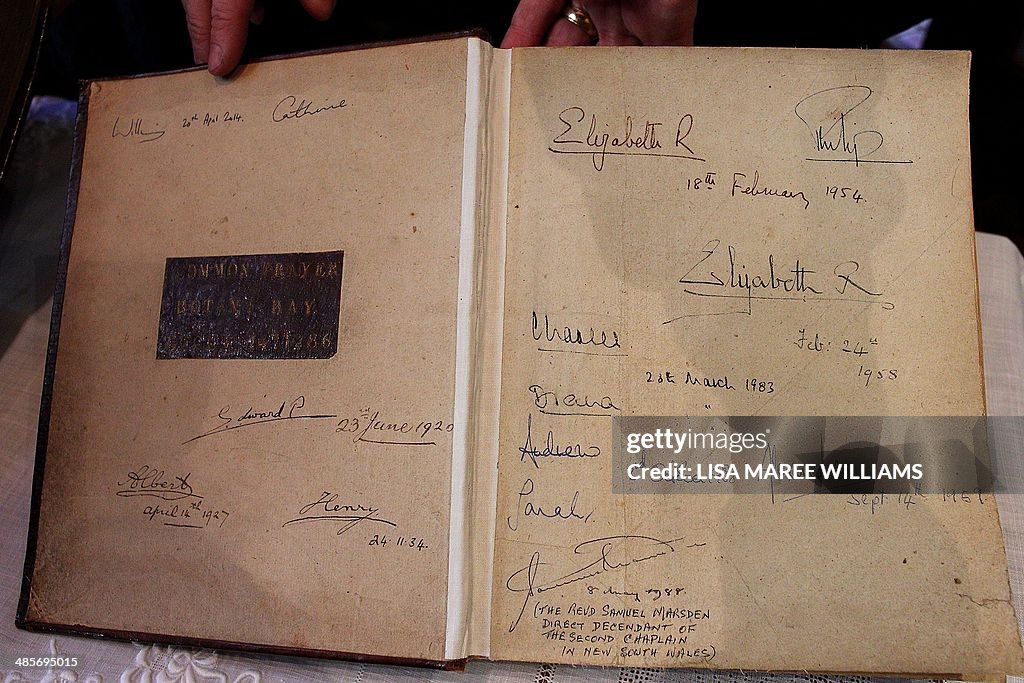 William 20th April 2014. Catherine.
COMMON PRAYER
BOTANY BAY
Edward P. 23rd June 1920
Albert
April 14th 1927
Henry
24.11.34.
Elizabeth R Philip
18th February 1954.
Elizabeth R
Feb: 24th
1958
Charles
28th March 1983
Diana "
Andrew
Sept 14th
Sarah,
8 May 1988.
(THE REVD SAMUEL MARSDEN
DIRECT DECENDANT OF
THE SECOND CHAPLAIN
IN NEW SOUTH WALES)
gettyimages
LISA MAREE WILLIAMS
485695015